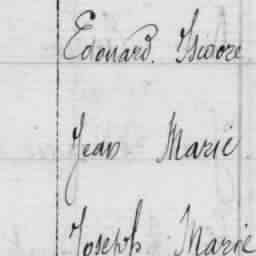 Edouard. Isidore
Jean Marie
Joseph Marie